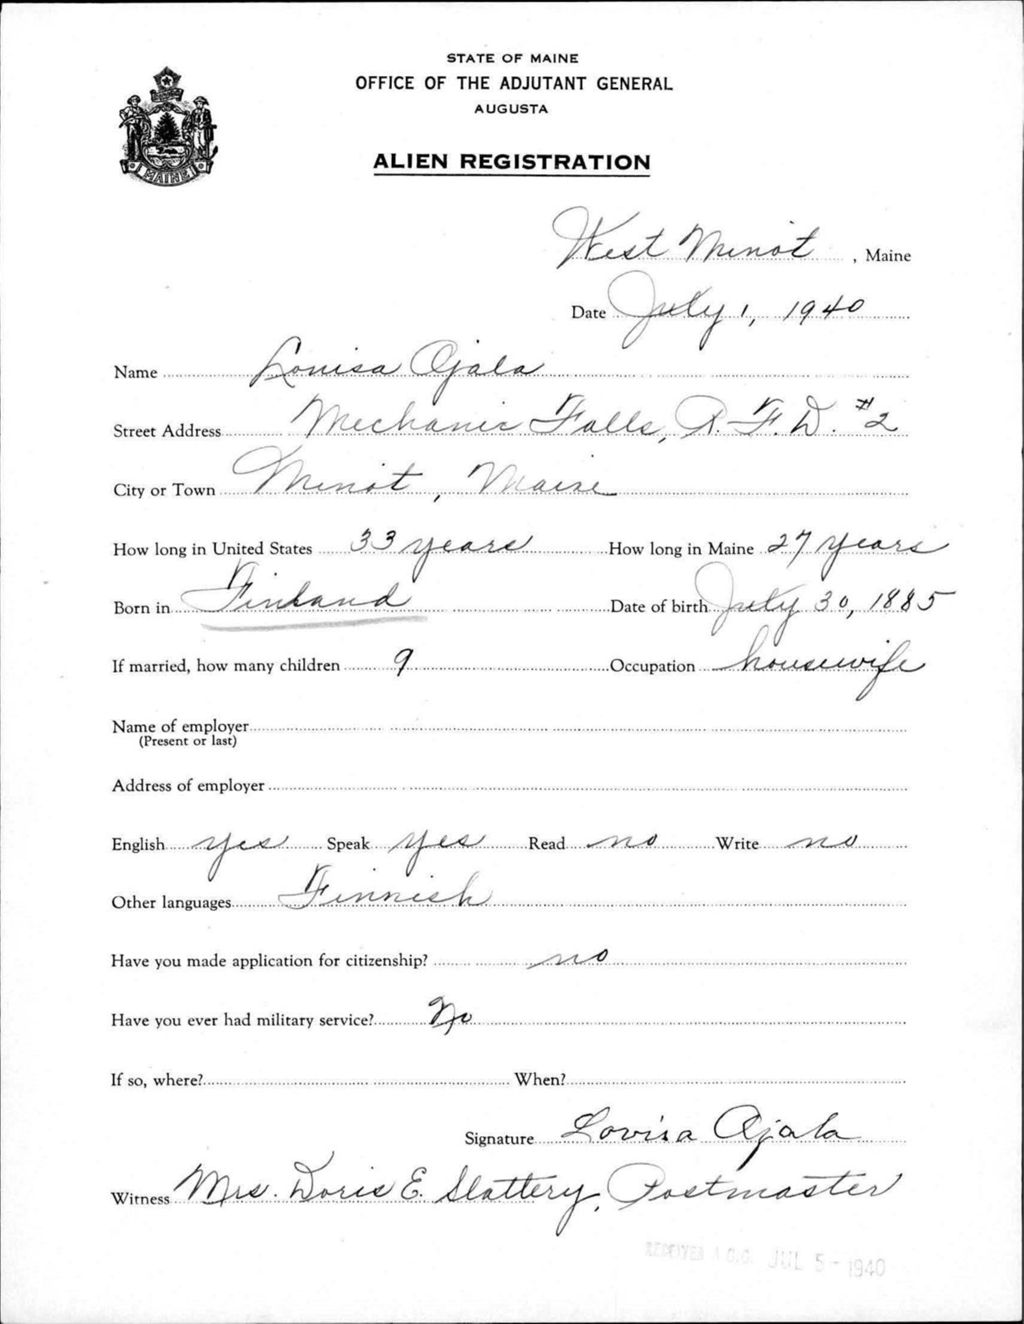 STATE OF MAINE
OFFICE OF THE ADJUTANT GENERAL
AUGUSTA
ALIEN REGISTRATION
MAINE
West Minot, Maine
Date July 1, 1940
Name Louisa Ojala
Street Address Mechanic Falls, R.F.D. #2
City or Town Minot, Maine
How long in United States 33 years How long in Maine 27 years
Born in Finland Date of birth July 30, 1885
If married, how many children 9 Occupation housewife
Name of employer
(Present or last)
Address of employer
English yes Speak yes Read no Write no
Other languages Finnish
Have you made application for citizenship? no
Have you ever had military service? No
If so, where? When?
Signature Lovisa Ojala
Witness Mrs. Doris E. Slattery, Postmaster
RECEIVED A.G.O. JUL 5 - 1940